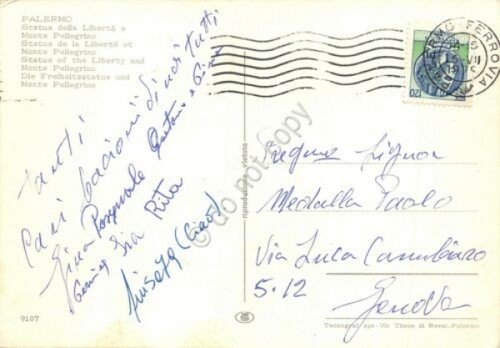 PALERMO
Statua della Libertà e
Monte Pellegrino
Statue de la Liberté et
Monte Pellegrino
Statue of the Liberty and
Monte Pellegrino
Die Freiheitsstatue und
Monte Pellegrino
Tanti
Cari bacioni di noi tutti
Gina Pasquale Gaetano e
Zia Rita
Giusezz (Ciao)
9107
riproduzione vietata
PALERMO FERROVIA
120
Egregio Signor
Medulla Paolo
Via Luca Cambiaso
5-12
Genova
Tecnograf spa - Via Thaon di Revel - Palermo
do not copy